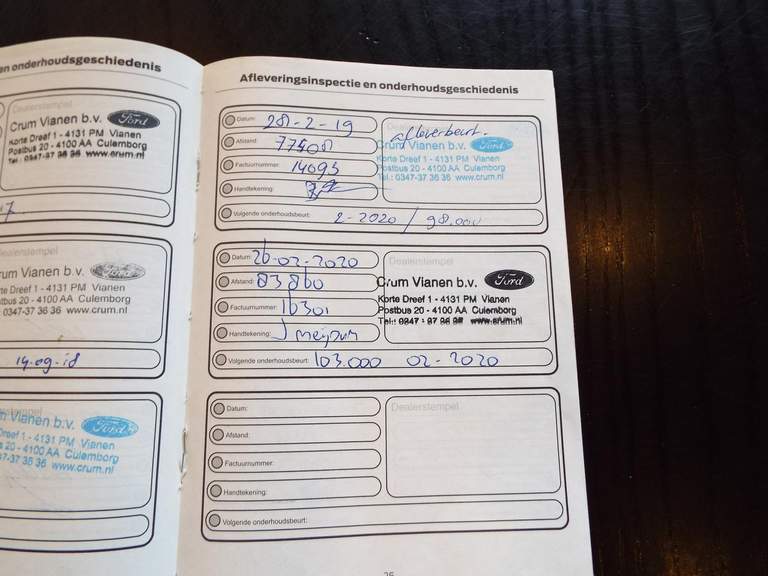 en onderhoudsgeschiedenis
Dealerstempel
Crum Vianen b.v. Ford
Korte Dreef 1 - 4131 PM Vianen
Postbus 20 - 4100 AA Culemborg
Tel.: 0347-37 36 36 www.crum.nl
Dealerstempel
rum Vianen b.v. Ford
te Dreef 1 - 4131 PM Vianen
tbus 20 - 4100 AA Culemborg
: 0347-37 36 36 www.crum.nl
14-09-18
Vianen b.v. Ford
Dreef 1 - 4131 PM Vianen
s 20 - 4100 AA Culemborg
47-37 36 36 www.crum.nl
Afleveringsinspectie en onderhoudsgeschiedenis
Datum: 28-2-19
Afstand: 77408
Factuurnummer: 14093
Handtekening:
Volgende onderhoudsbeurt: 2-2020 / 98.000
afleverbeurt.
Crum Vianen b.v. Ford
Korte Dreef 1 - 4131 PM Vianen
Postbus 20 - 4100 AA Culemborg
Tel.: 0347-37 36 36 www.crum.nl
Datum: 26-02-2020
Afstand: 83860
Factuurnummer: 16301
Handtekening:
Volgende onderhoudsbeurt: 103.000 02-2020
Dealerstempel
Crum Vianen b.v. Ford
Korte Dreef 1 - 4131 PM Vianen
Postbus 20 - 4100 AA Culemborg
Tel.: 0347-37 36 36 www.crum.nl
Datum:
Afstand:
Factuurnummer:
Handtekening:
Volgende onderhoudsbeurt:
Dealerstempel